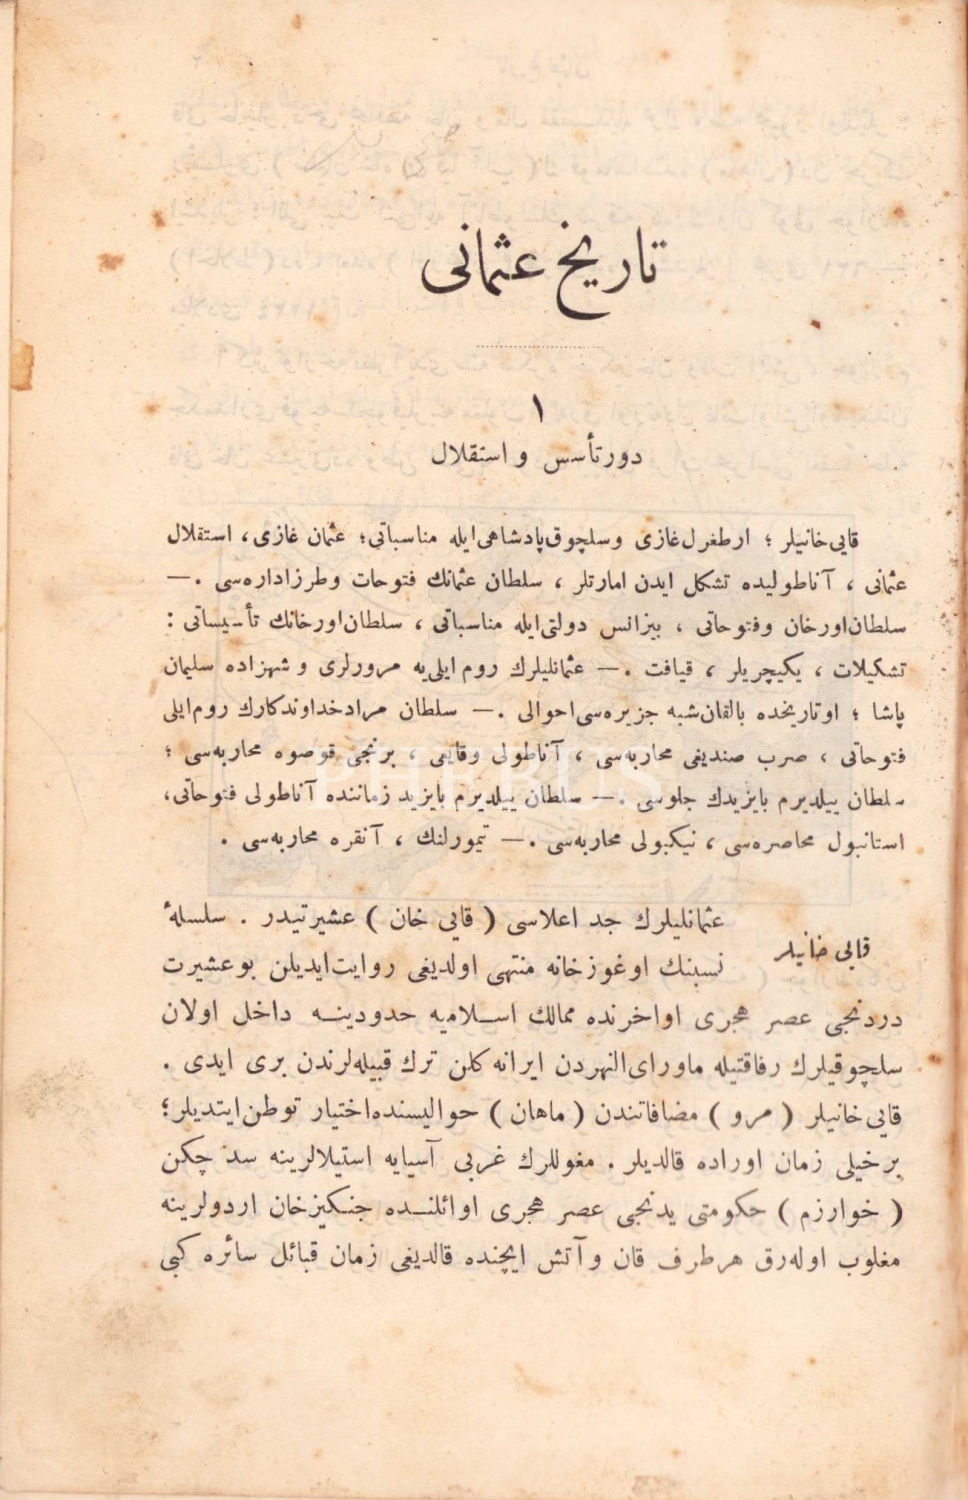 تاريخ عثمانى
١
دور تأسس و استقلال
قايى خانيلر ؛ ارطغرل غازى و سلچوق پادشاهى ايله مناسباتى ؛ عثمان غازى ، استقلال
عثمانى ، آناطوليده تشكل ايدن امارتلر ، سلطان عثمانك فتوحات و طرز اداره‌سى . —
سلطان اورخان و فتوحاتى ، بيزانس دولتى ايله مناسباتى ، سلطان اورخانك تأسيساتى :
تشكيلات ، يكيچريلر ، قيافت . — عثمانليلرك روم ايلى‌يه مرورلرى و شهزاده سليمان
پاشا ؛ او تاريخده بالقان شبه جزيره‌سى احوالى . — سلطان مراد خداوندكارك روم ايلى
فتوحاتى ، صرب صنديغى محاربه‌سى ، آناطولى وقايعى ، برنجى قوصوه محاربه‌سى ؛
سلطان ييلديرم بايزيدك جلوسى . — سلطان ييلديرم بايزيد زماننده آناطولى فتوحاتى ،
استانبول محاصره‌سى ، نيكبولى محاربه‌سى . — تيمورلنك ، آنقره محاربه‌سى .
قايى خانيلر
عثمانليلرك جد اعلاسى ( قايى خان ) عشيرتيدر . سلسلهٔ
نسبنك اوغوز خانه منتهى اولديغى روايت ايديلن بو عشيرت
دردنجى عصر هجرى اواخرنده ممالك اسلاميه حدودينه داخل اولان
سلچوقيلرك رفاقتيله ماوراى النهردن ايرانه كلن ترك قبيله‌لرندن برى ايدى .
قايى خانيلر ( مرو ) مضافاتندن ( ماهان ) حواليسنده اختيار توطن ايتديلر ؛
بر خيلى زمان اوراده قالديلر . مغوللرك غربى آسيايه استيلالرينه سد چكن
( خوارزم ) حكومتى يدنجى عصر هجرى اوائلنده جنكيز خان اردولرينه
مغلوب اوله‌رق هر طرف قان و آتش ايچنده قالديغى زمان قبائل سائره كبى